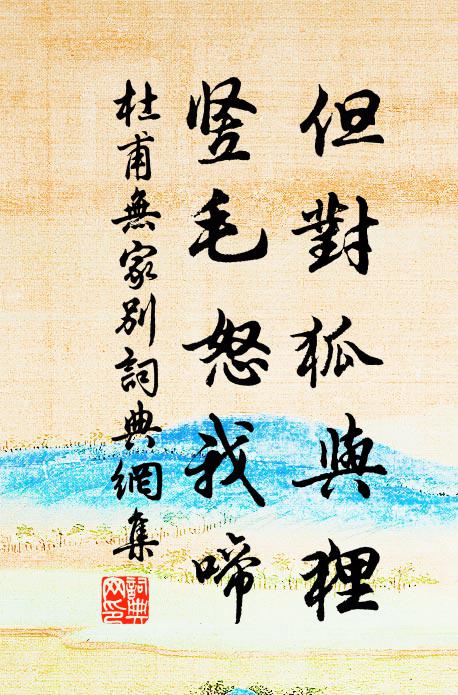 但對狐與狸
竖毛怒我啼
杜甫無家别詞典網集
詞典